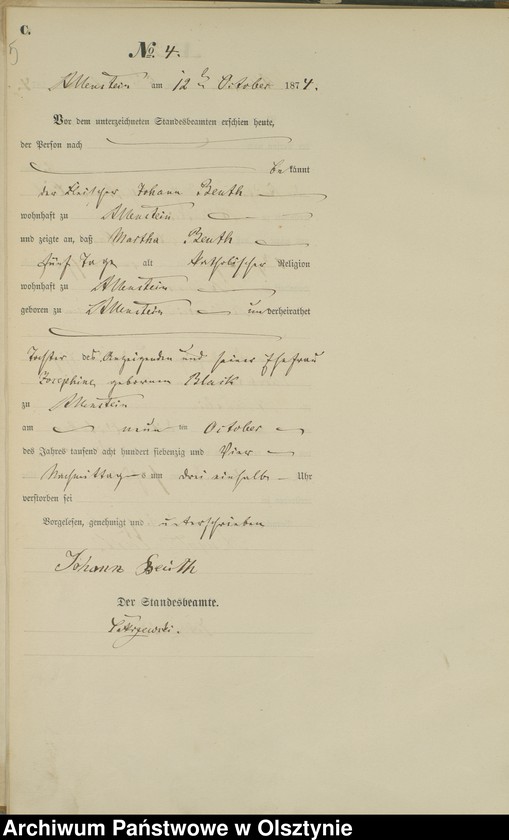 C.
5
No. 4.
Allenstein am 12ten October 1874.
Vor dem unterzeichneten Standesbeamten erschien heute,
der Person nach
bekannt
der Fleischer Johann Beuth
wohnhaft zu Allenstein
und zeigte an, daß Martha Beuth
fünf Tage alt katholischer Religion
wohnhaft zu Allenstein
geboren zu Allenstein unverheirathet
Tochter des Anzeigenden und seiner Ehefrau
Josephine geborenen Black
zu Allenstein
am neun ten October
des Jahres tausend acht hundert siebenzig und Vier
Nachmittags um drei einhalb Uhr
verstorben sei
Vorgelesen, genehmigt und unterschrieben
Johann Beuth
Der Standesbeamte.
Archiwum Państwowe w Olsztynie